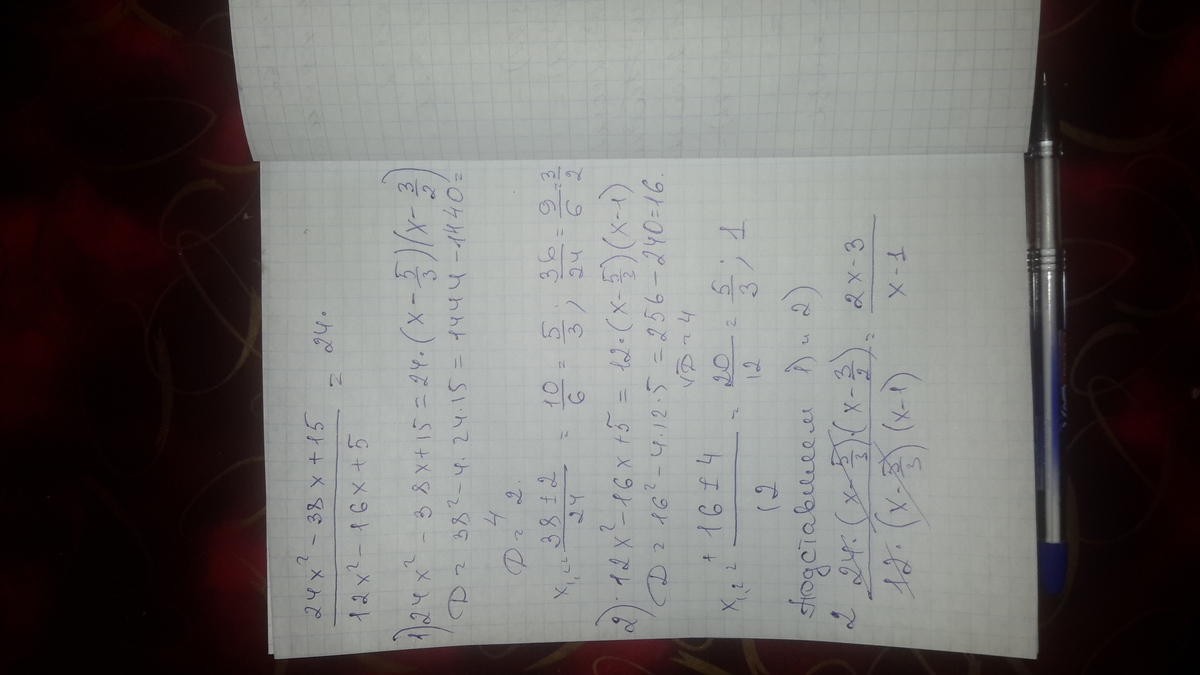 24x² - 38x + 15 / 12x² - 16x + 5 = 24.
1) 24x² - 38x + 15 = 24·(x - 5/3)(x - 3/2)
D = 38² - 4·24·15 = 1444 - 1440 =
D = 4 2.
x₁,₂ = 38 ± 2 / 24 = 10/6 = 5/3; 36/24 = 9/6 = 3/2
2) 12x² - 16x + 5 = 12·(x - 5/3)(x - 1)
D = 16² - 4·12·5 = 256 - 240 = 16.
√D = 4
x₁,₂ = + 16 ± 4 / 12 = 20/12 = 5/3; 1
Подставляем 1) и 2)
2 24·(x - 5/3)(x - 3/2) / 12·(x - 5/3)(x - 1) = 2x - 3 / x - 1